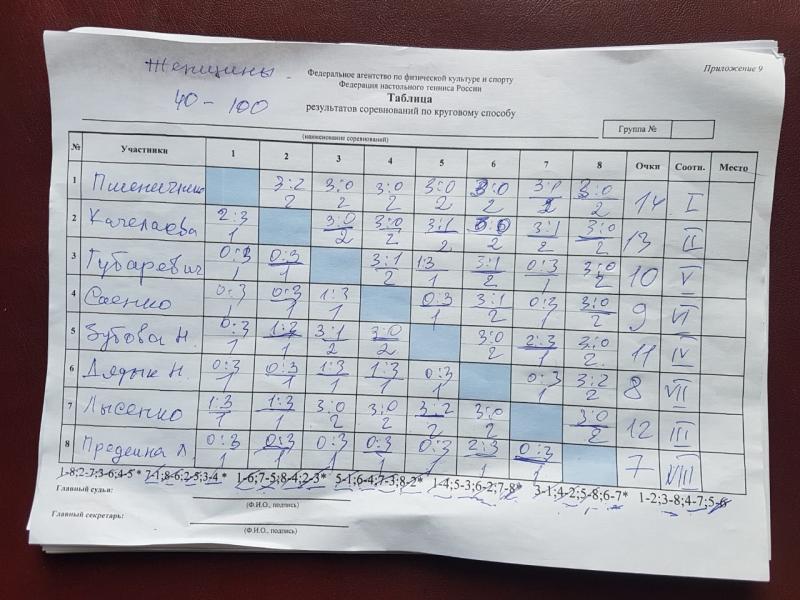 Женщины
40-100
Приложение 9
Федеральное агентство по физической культуре и спорту
Федерация настольного тенниса России
Таблица
результатов соревнований по круговому способу
(наименование соревнований)
Группа №
№ Участники 1 2 3 4 5 6 7 8 Очки Соотн. Место
1 3:2 3:0 3:0 3:0 3:0 3:0 3:0 14 I
2 2 2 2 2 2 2
2 Качелаева 2:3 3:0 3:0 3:1 3:0 3:1 3:0 13 II
1 2 2 2 2 2 2
3 Губаревич 0:3 0:3 3:1 1:3 3:1 0:3 3:0 10 V
1 1 2 1 2 1 2
4 Саенко 0:3 0:3 1:3 0:3 3:1 0:3 3:0 9 VI
1 1 1 1 2 1 2
5 Зубова Н. 0:3 1:3 3:1 3:0 3:0 2:3 3:0 11 IV
1 1 2 2 2 1 2
6 Дядык Н. 0:3 0:3 1:3 1:3 0:3 0:3 3:2 8 VII
1 1 1 1 1 1 2
7 Лысенко 1:3 1:3 3:0 3:0 3:2 3:0 3:0 12 III
1 1 2 2 2 2 2
8 Предеина Л 0:3 0:3 0:3 0:3 0:3 2:3 0:3 7 VIII
1 1 1 1 1 1 1
1-8;2-7;3-6;4-5* 7-1;8-6;2-5;3-4* 1-6;7-5;8-4;2-3* 5-1;6-4;7-3;8-2* 1-4;5-3;6-2;7-8* 3-1;4-2;5-8;6-7* 1-2;3-8;4-7;5-6
Главный судья:
(Ф.И.О., подпись)
Главный секретарь:
(Ф.И.О., подпись)